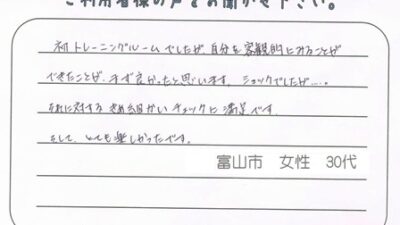 ご利用者様の声をお聞かせ下さい。
初トレーニングルームでしたが、自分を客観的にみることが
できたことが、まず良かったと思います。ショックでしたが.....
それに対するきめ細かいチェックに満足です。
そして、とても楽しかったです。
富山市 女性 30代